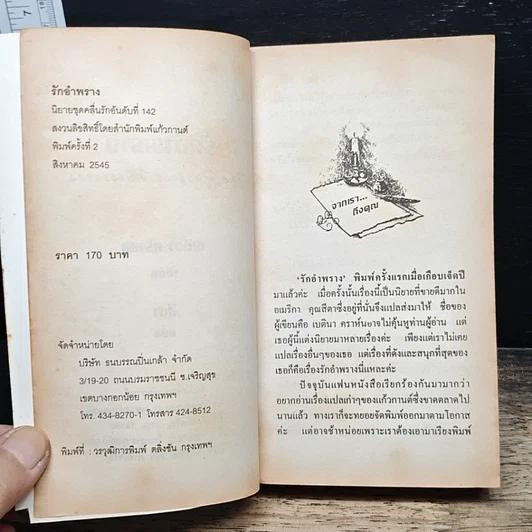 รักอำพราง
นิยายชุดคลื่นรักอันดับที่ 142
สงวนลิขสิทธิ์โดยสำนักพิมพ์แก้วกานต์
พิมพ์ครั้งที่ 2
สิงหาคม 2545
ราคา 170 บาท
จัดจำหน่ายโดย
บริษัท ธนบรรณปิ่นเกล้า จำกัด
3/19-20 ถนนบรมราชชนนี ซ.เจริญสุข
เขตบางกอกน้อย กรุงเทพฯ
โทร. 434-8270-1 โทรสาร 424-8512
พิมพ์ที่ : วรวุฒิการพิมพ์ ตลิ่งชัน กรุงเทพฯ
จากเรา...
ถึงคุณ
'รักอำพราง' พิมพ์ครั้งแรกเมื่อเกือบเจ็ดปี
มาแล้วค่ะ เมื่อครั้งนั้นเรื่องนี้เป็นนิยายที่ขายดีมากใน
อเมริกา คุณสีตาซึ่งอยู่ที่นั่นจึงแปลส่งมาให้ ชื่อของ
ผู้เขียนคือ เบตินา คราห์นอาจไม่คุ้นหูท่านผู้อ่าน แต่
เธอผู้นี้แต่งนิยายมาหลายเรื่องค่ะ เพียงแต่เราไม่เคย
แปลเรื่องอื่นๆของเธอ แต่เรื่องที่ดังและสนุกที่สุดของ
เธอก็คือเรื่องรักอำพรางนี้แหละค่ะ
ปัจจุบันแฟนหนังสือเรียกร้องกันมามากว่า
อยากอ่านเรื่องแปลเก่าๆของแก้วกานต์ซึ่งขาดตลาดไป
นานแล้ว ทางเราก็จะทยอยจัดพิมพ์ออกมาตามโอกาส
ค่ะ แต่อาจช้าหน่อยเพราะเราต้องเอามาเรียงพิมพ์